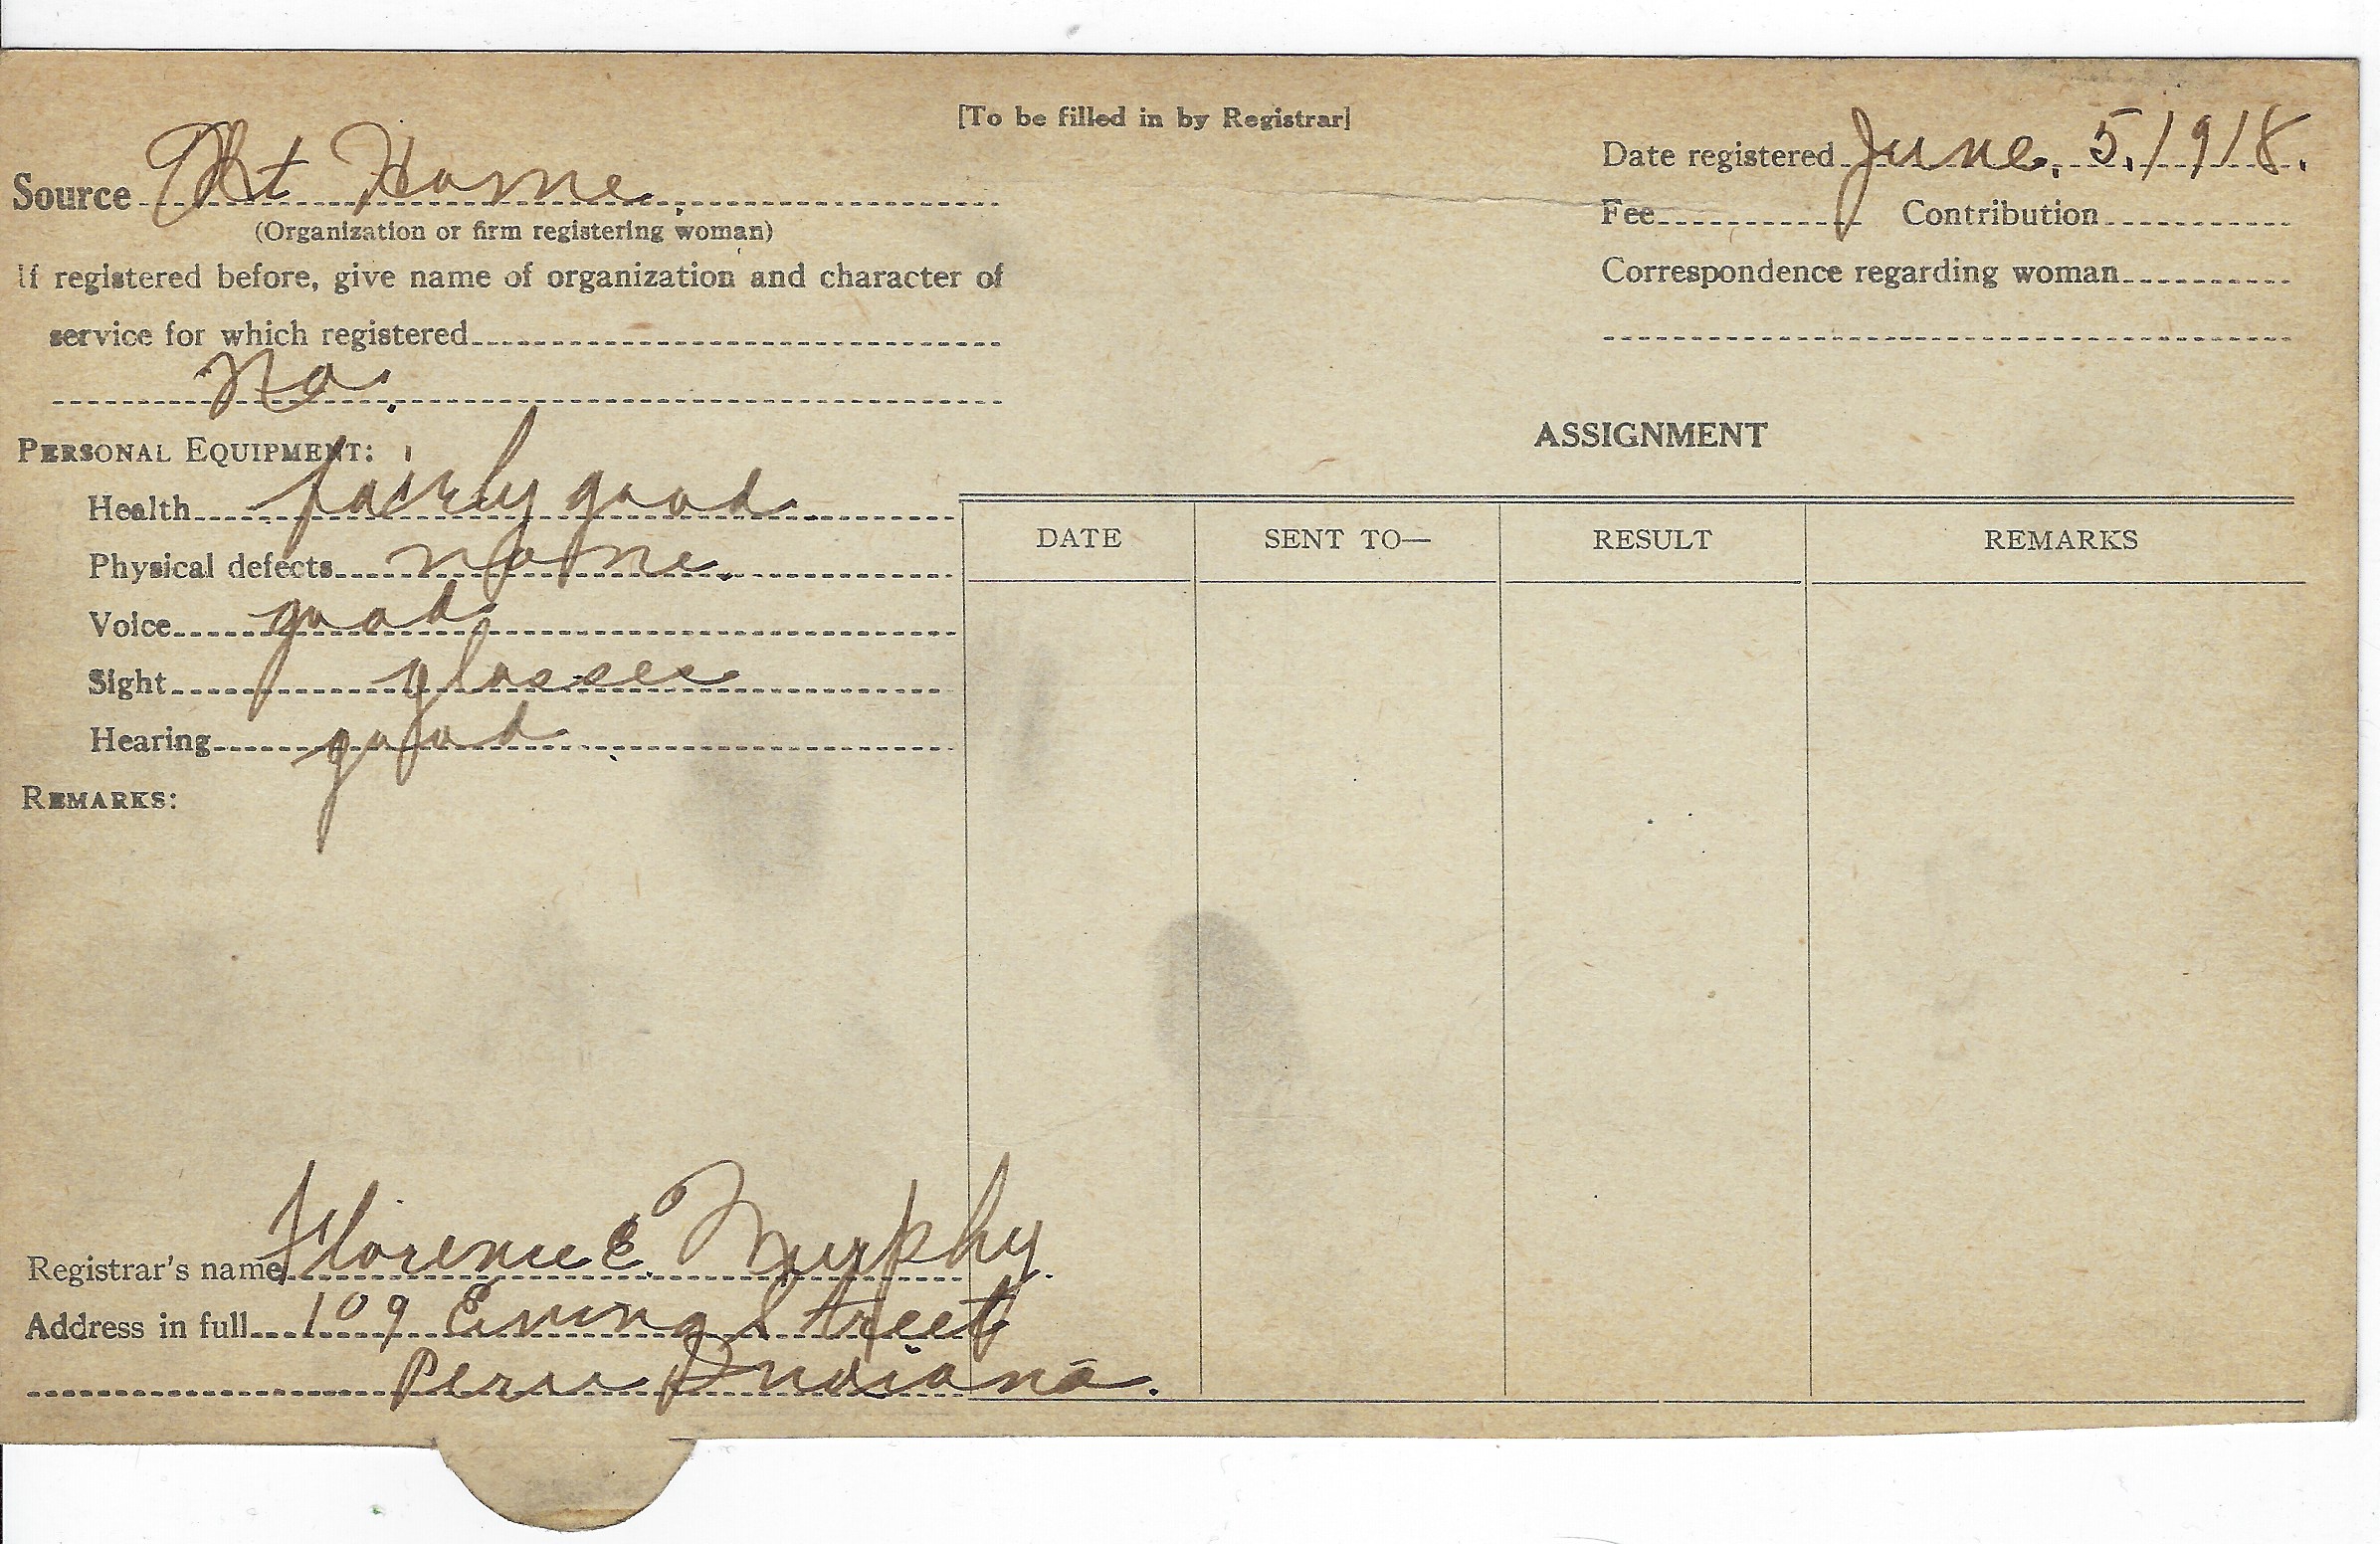 [To be filled in by Registrar]
Source At Home.
(Organization or firm registering woman)
If registered before, give name of organization and character of
service for which registered
No.
Date registered June. 5, 1918.
Fee Contribution
Correspondence regarding woman
PERSONAL EQUIPMENT:
Health fairly good
Physical defects none.
Voice good
Sight glasses
Hearing good
REMARKS:
ASSIGNMENT
DATE SENT TO— RESULT REMARKS
Registrar's name Florence E. Murphy.
Address in full 109 Ewing Street
Peru Indiana.